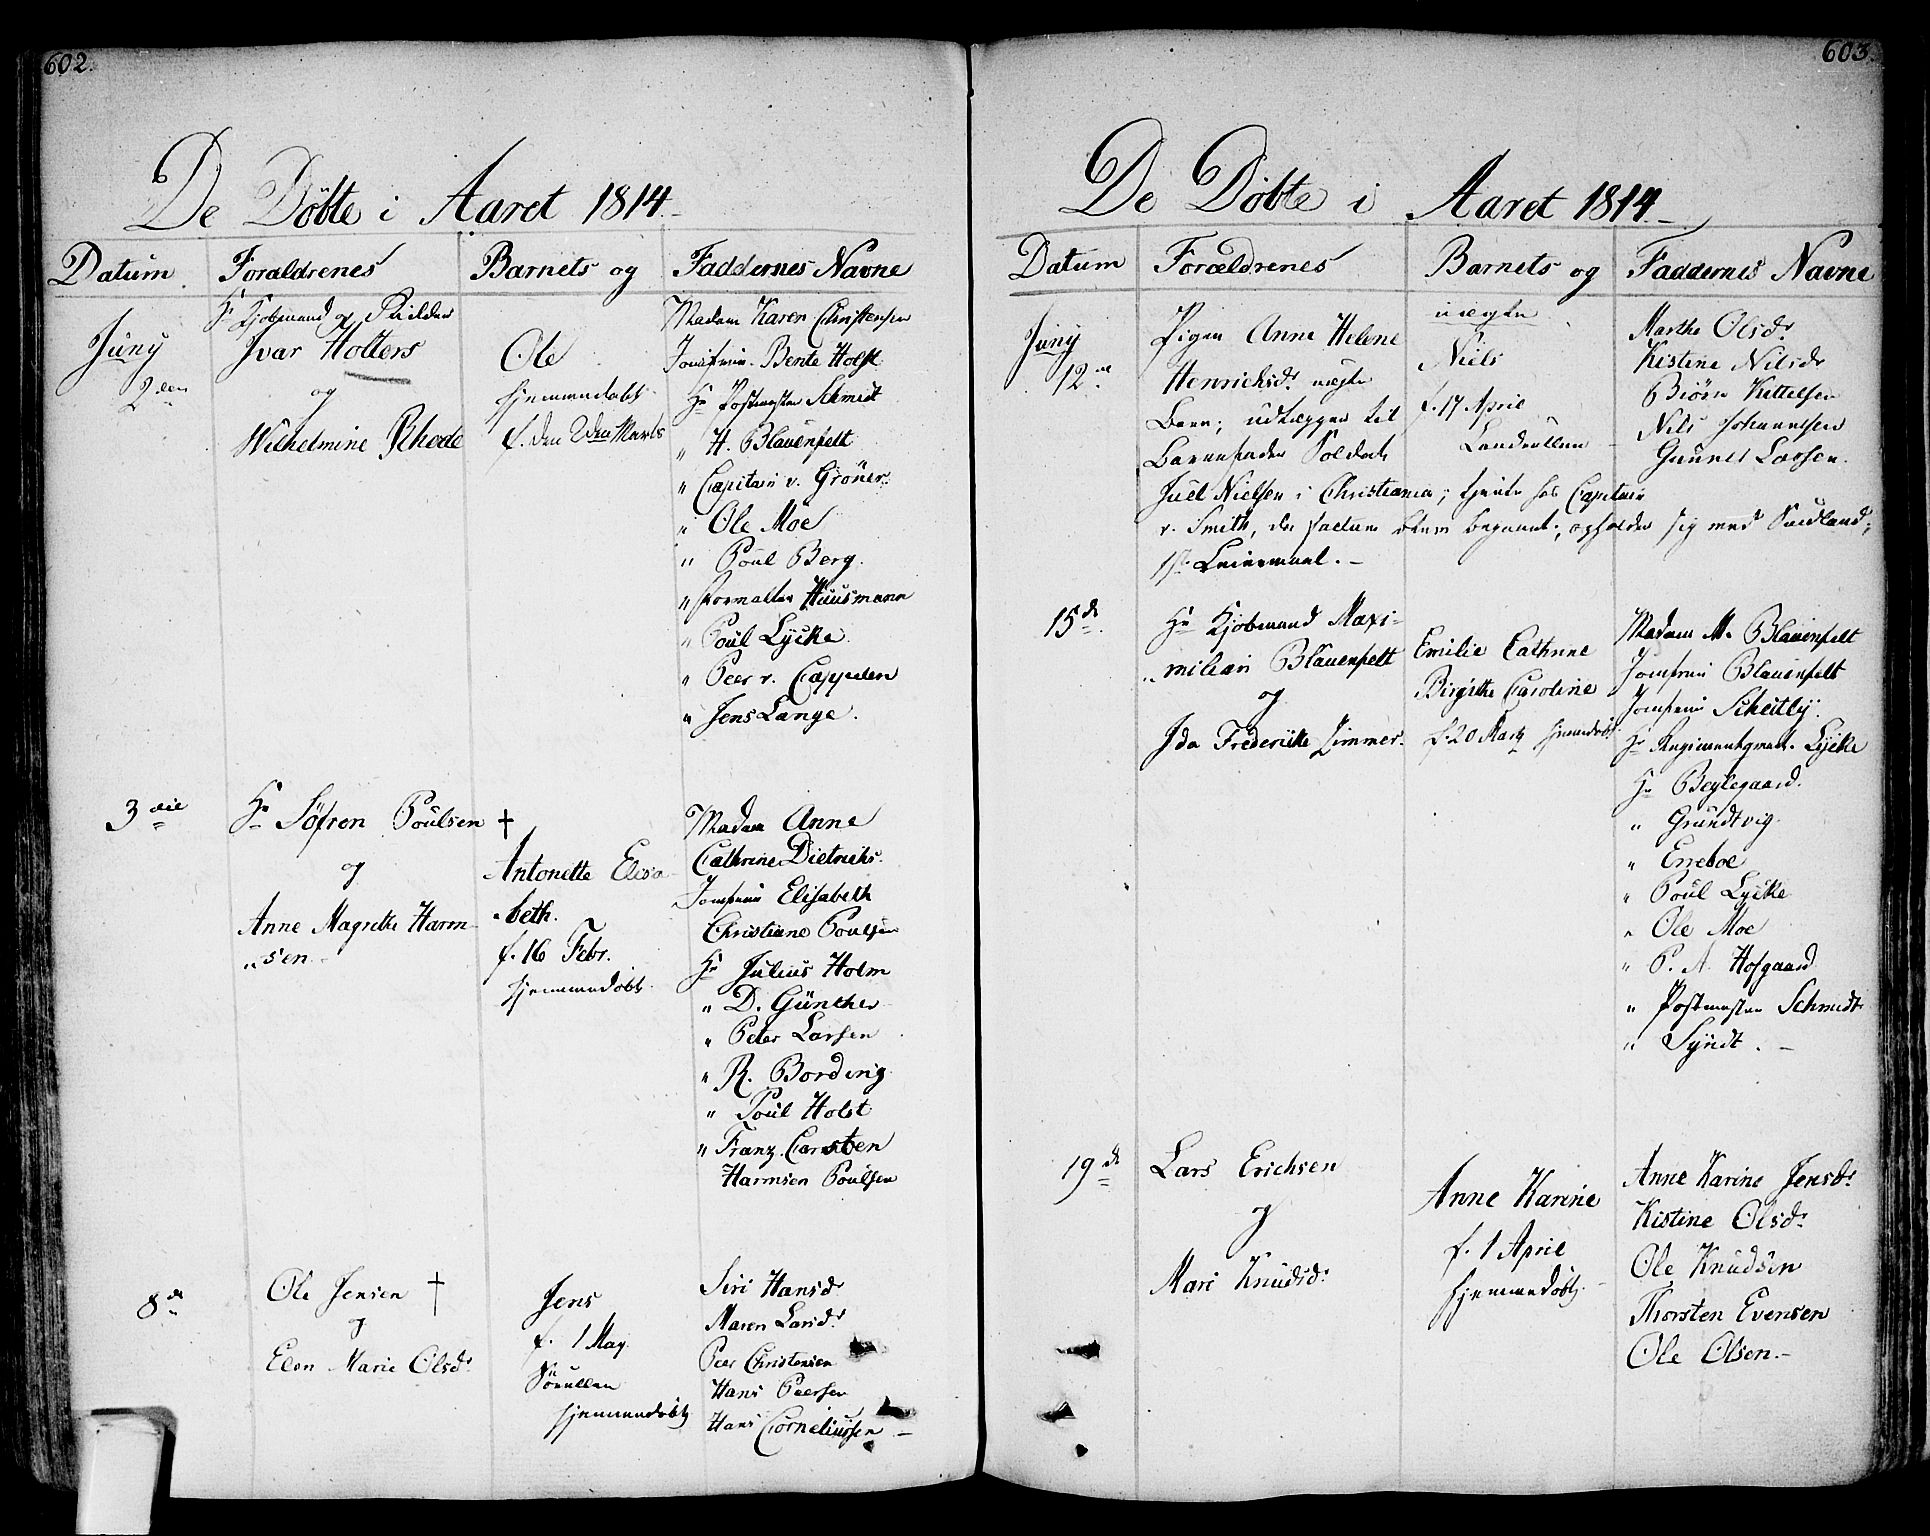 602.
De Döbte i Aaret 1814.
Datum Foraldrenes Barnets og Faddernes Navne
Juny 2den
Hr Kjøbmand og Ridder
Ivar Holters
og
Wilhelmine Rhode
Ole
hjemmedøbt
f. den 2den Marts
Madam Karen Christensen
Jomfrue Bente Holst
Hr Postmester Schmidt
" H. Blauenfelt
" Capitain v. Gröner
" Ole Moe
" Poul Berg
" Forvalter Huusmann
" Poul Lycke
" Peer v. Cappelen
" Jens Lange.
3die
Hr Söfren Poulsen †
og
Anne Magrethe Harm-
"sen.
Antonette Elisa-
"beth.
f. 16 Febr.
hjemmedøbt.
Madam Anne
Cathrine Dietrichs.
Jomfrue Elisabeth
Christiane Poulsen
Hr Julius Holm
" D. Günther
" Peter Larsen
" R. Bording
" Poul Holst
" Franz Carsten
Harmsen Poulsen
8de
Ole Jensen †
og
Elen Marie Olsdr
Jens
f. 1 May
hjemmedøbt
Siri Hansdr
Maren Larsdr
Peer Christensen
Hans Peersen
Hans Corneliussen
603.
De Döbte i Aaret 1814
Datum Forældrenes Barnets og Faddernes Navne
Juny 12te
Pigen Anne Helene
Henrichsdr uægte
Barn; udlægger til
Barnefader Soldat
Juel Nielsen i Christiania; tjente hos Capitain
v. Smith, da factum blev begaaet; opholder sig med
1ste Leiermaal.
uægte
Niels
f. 17 April
Marthe Olsdr
Kistine Nilsdr
Biörn Kittelsen
Nils Johannesen
Gunnel Larsen.
15de
Hr Kjøbmand Maxi-
"milian Blauenfelt
og
Ida Frederikke Zimmer.
Emilie Cathrine
Birgithe Caroline
f. 20 Marts hjemmedøbt
Madam M. Blauenfelt
Jomfrue Blauenfelt
Jomfrue Scheitly.
Hr Regimentqvart. Lycke
Hr Beylegaard.
" Grundtvig
" Erreboe
" Poul Lycke
" Ole Moe
" P. A. Hofgaard
" Postmester Schmidt
" Syndt.
19de
Lars Erichsen
og
Mari Knudsdr
Anne Karine
f. 1 April
hjemmedøbt.
Anne Karine Jensdr
Kistine Olsdr
Ole Knudsen
Thorsten Evensen
Ole Olsen.